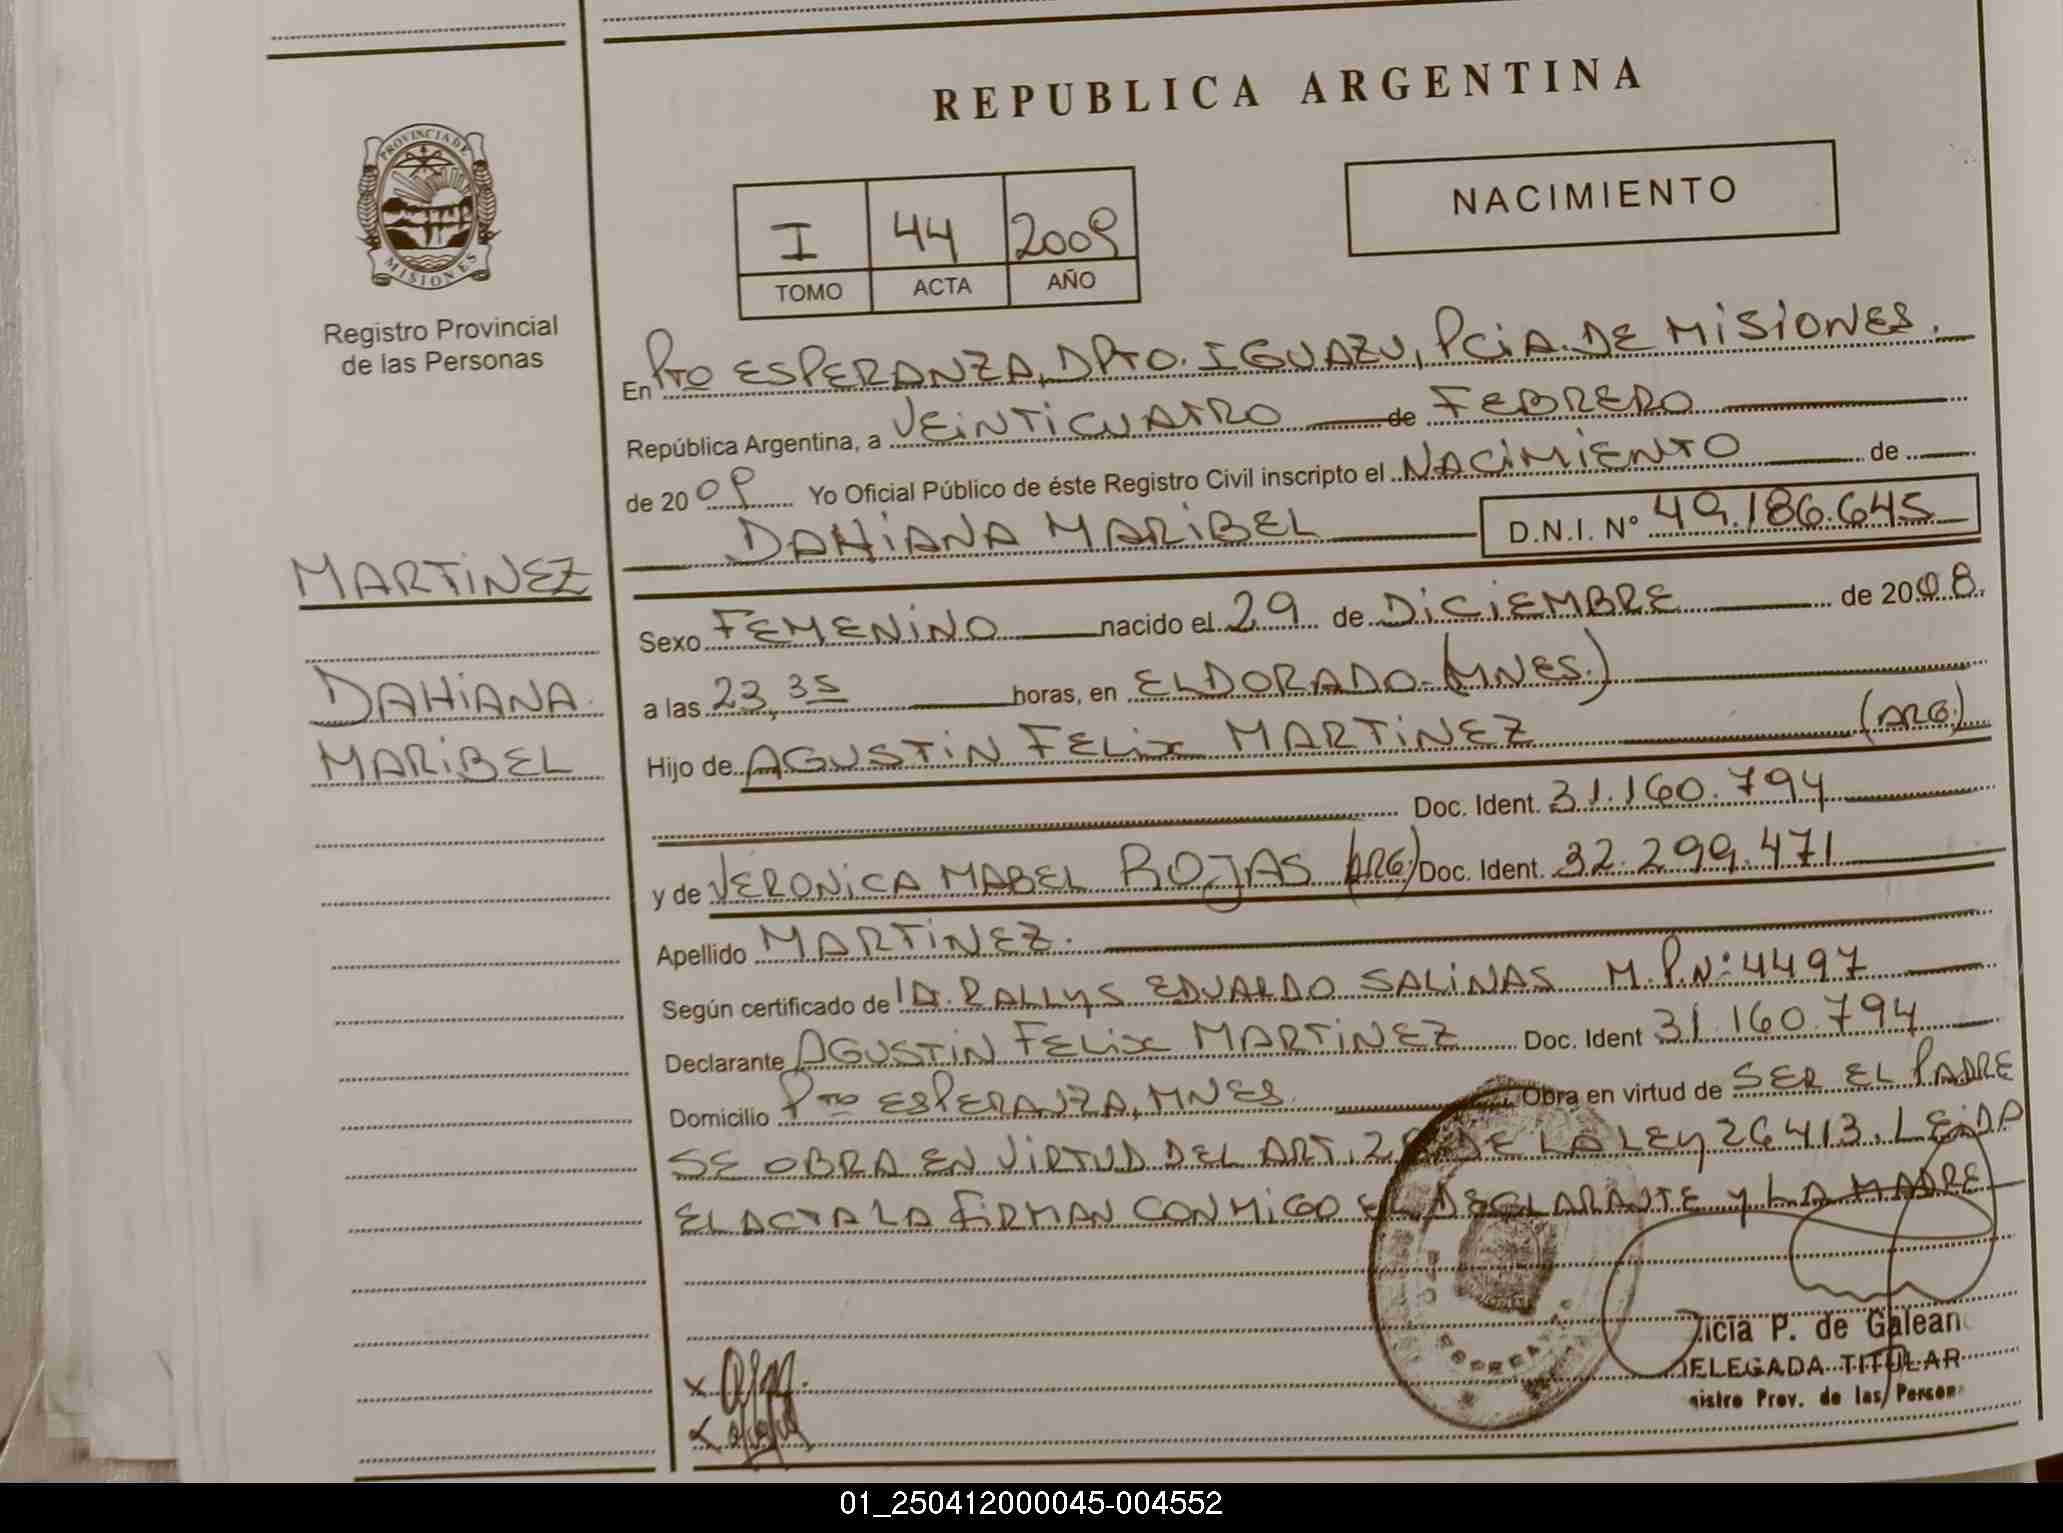 REPUBLICA ARGENTINA
PROVINCIA DE
MISIONES
Registro Provincial
de las Personas
NACIMIENTO
I 44 2009
TOMO ACTA AÑO
En Pto ESPERANZA, DPTO. IGUAZU, PCiA. DE MiSiONES.
República Argentina, a VEiNTiCUATRO de FEBRERO
de 2009 Yo Oficial Público de éste Registro Civil inscripto el NACiMiENTO de
DAHiANA MARiBEL D.N.I. N° 49.186.645
MARTiNEZ
DAHiANA
MARiBEL
Sexo FEMENiNO nacido el 29 de DiCiEMBRE de 2008.
a las 23,35 horas, en ELDORADO-(MNES.)
Hijo de AGUSTiN FELix MARTiNEZ (ARG.)
Doc. Ident. 31.160.794
y de VERONiCA MABEL ROJAS (ARG.) Doc. Ident. 32.299.471
Apellido MARTiNEZ.
Según certificado de EDUARDO SALiNAS M.P.N:4497
Declarante AGUSTiN FELix MARTiNEZ Doc. Ident 31.160.794
Domicilio Pto ESPERANZA, MNES. Obra en virtud de SER EL PADRE
SE OBRA EN ViRTUD DEL ART. DE LA LEy 26413. LEiDA
EL ACTA LA FiRMAN CONMiGO EL DECLARANTE y LA MADRE
icia P. de Galean
ELEGADA TITULAR
istro Prov. de las Person
01_250412000045-004552